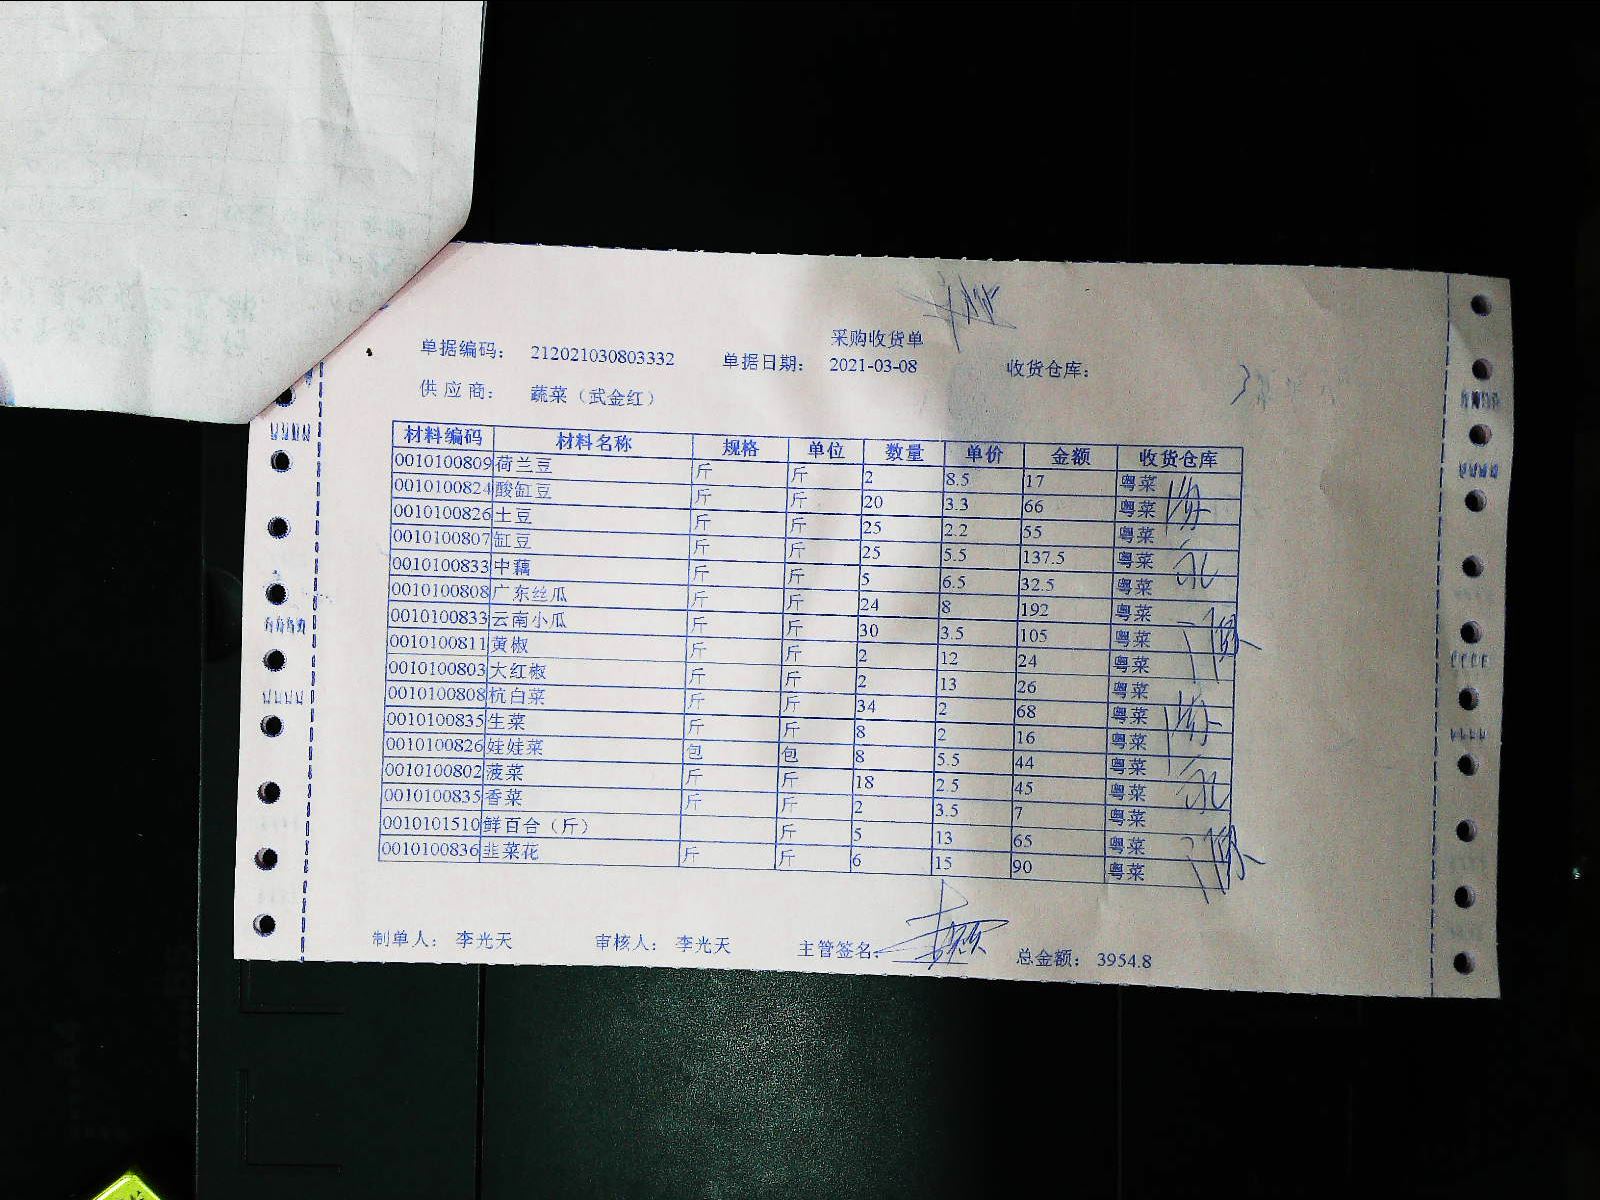 采购收货单
单据编码： 212021030803332 单据日期： 2021-03-08 收货仓库：
供 应 商： 蔬菜（武金红）
材料编码 材料名称 规格 单位 数量 单价 金额 收货仓库
0010100809 荷兰豆 斤 斤 2 8.5 17 粤菜
0010100824 酸缸豆 斤 斤 20 3.3 66 粤菜
0010100826 土豆 斤 斤 25 2.2 55 粤菜
0010100807 缸豆 斤 斤 25 5.5 137.5 粤菜
0010100833 中藕 斤 斤 5 6.5 32.5 粤菜
0010100808 广东丝瓜 斤 斤 24 8 192 粤菜
0010100833 云南小瓜 斤 斤 30 3.5 105 粤菜
0010100811 黄椒 斤 斤 2 12 24 粤菜
0010100803 大红椒 斤 斤 2 13 26 粤菜
0010100808 杭白菜 斤 斤 34 2 68 粤菜
0010100835 生菜 斤 斤 8 2 16 粤菜
0010100826 娃娃菜 包 包 8 5.5 44 粤菜
0010100802 菠菜 斤 斤 18 2.5 45 粤菜
0010100835 香菜 斤 斤 2 3.5 7 粤菜
0010101510 鲜百合（斤） 斤 5 13 65 粤菜
0010100836 韭菜花 斤 斤 6 15 90 粤菜
制单人： 李光天 审核人： 李光天 主管签名： 总金额： 3954.8